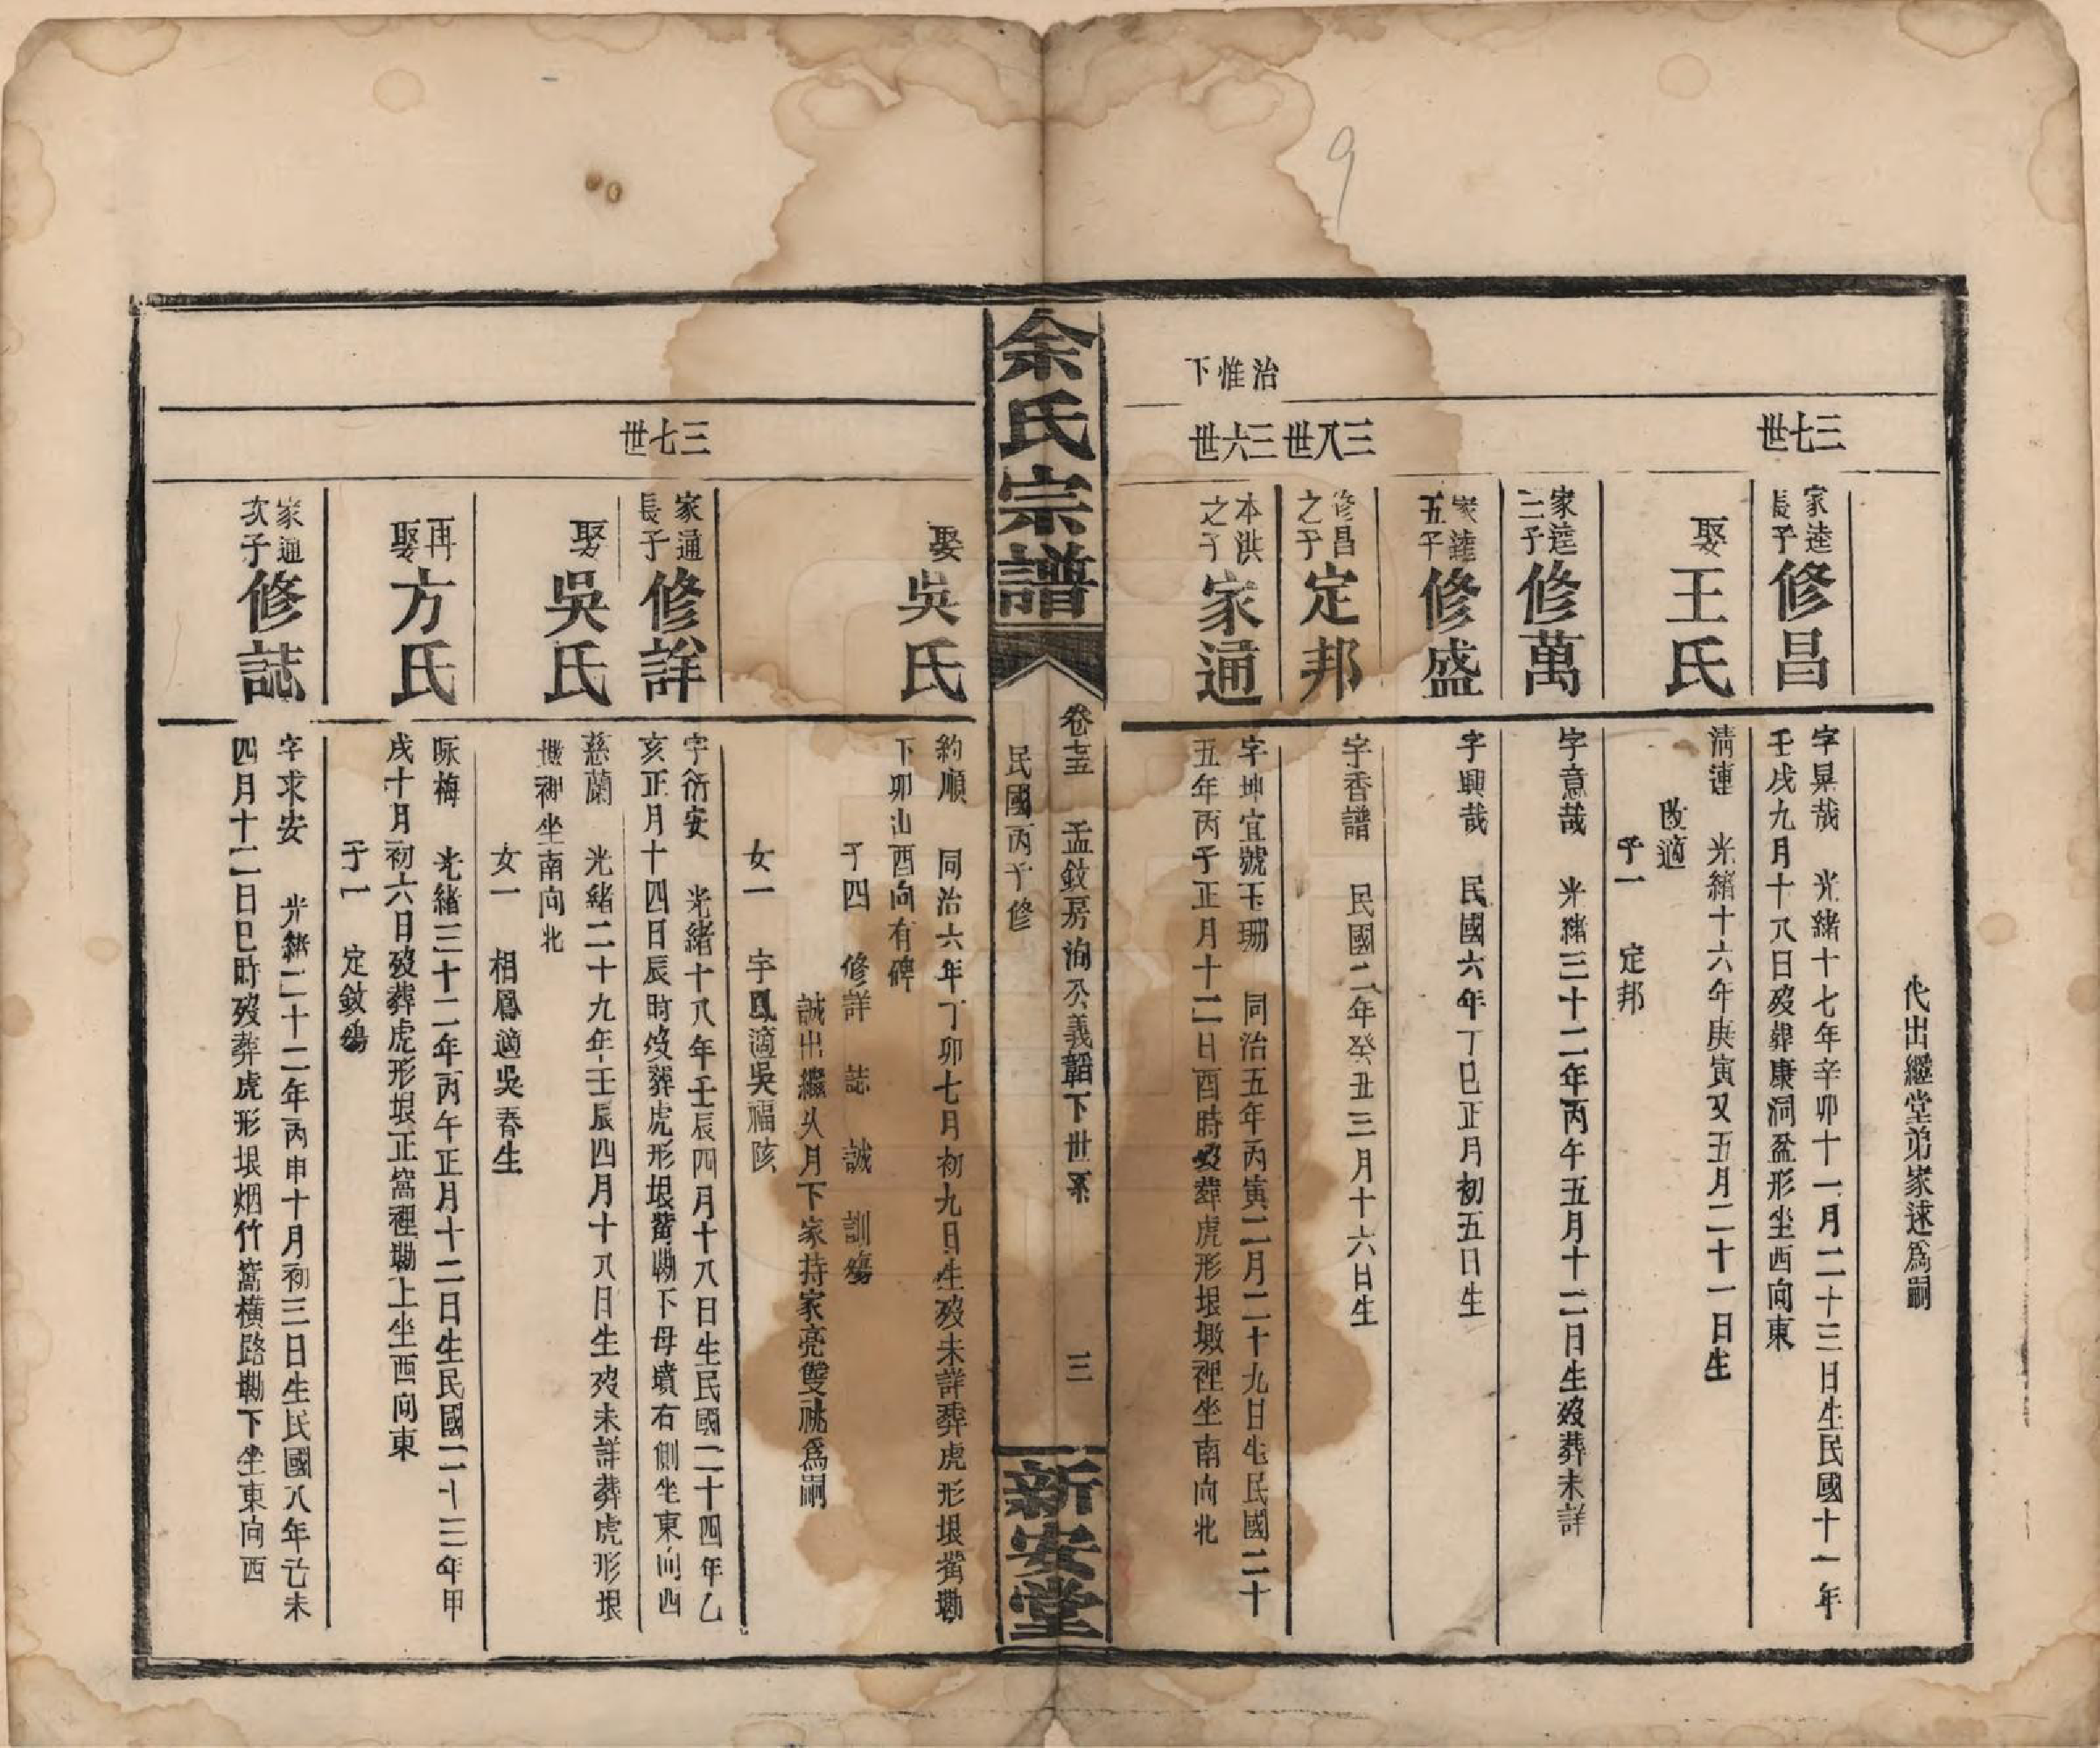 代出繼堂弟家逑爲嗣
三七世
家逵長子
修昌
字昇哉　光緒十七年辛卯十一月二十三日生民國十一年
壬戌九月十八日歿葬康洞盆形坐西向東
娶王氏
清連　光緒十六年庚寅又五月二十一日生
改適
子一　定邦
家逵三子
修萬
字意哉　光緒三十二年丙午五月十二日生歿葬未詳
家逵五子
修盛
字興哉　民國六年丁巳正月初五日生
三八世
修昌之子
定邦
字香譜　民國二年癸丑三月十六日生
治惟下
三六世
本洪之子
家通
字坤宜號玉珊　同治五年丙寅二月二十九日生民國二十
五年丙子正月十二日酉時歿葬虎形垠墩裡坐南向北
余氏宗譜
卷十五　孟敘房洵公義韜下世系　三
民國丙子修
新安堂
娶吳氏
約順　同治六年丁卯七月初九日生歿未詳葬虎形垠嘴墈
下卯山酉向有碑
子四　修詳　誌　誠　訓殤
誠出繼从月下家持家亮雙祧爲嗣
女一　字鳳適吳福陔
三七世
家通長子
修詳
字衍安　光緒十八年壬辰四月十八日生民國二十四年乙
亥正月十四日辰時歿葬虎形垠嘴墈下母墳右側坐東向西
娶吳氏
慈蘭　光緒二十九年壬辰四月十八日生歿未詳葬虎形垠
坐南向北
女一　相鳳適吳春生
再娶方氏
咏梅　光緒三十二年丙午正月十二日生民國二十三年甲
戌十月初六日歿葬虎形垠正窩裡墈上坐西向東
子一　定敘殤
家通次子
修誌
字求安　光緒二十二年丙申十月初三日生民國八年己未
四月十二日巳時歿葬虎形垠烟竹窩橫路墈下坐東向西